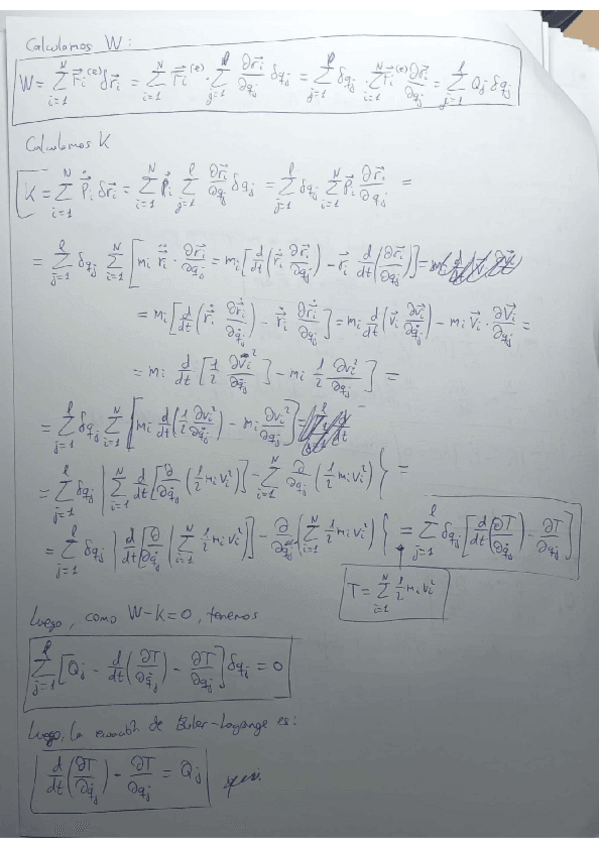 Calculamos W:
W = ∑_{i=1}^{N} F⃗_i^{(e)} δr⃗_i = ∑_{i=1}^{N} F⃗_i^{(e)} · ∑_{j=1}^{l} ∂r⃗_i/∂q_j δq_j = ∑_{j=1}^{l} δq_j · ∑_{i=1}^{N} F⃗_i^{(e)} ∂r⃗_i/∂q_j = ∑_{j=1}^{l} Q_j δq_j
Calculamos K
K = ∑_{i=1}^{N} ṗ⃗_i δr⃗_i = ∑_{i=1}^{N} ṗ⃗_i ∑_{j=1}^{l} ∂r⃗_i/∂q_j δq_j = ∑_{j=1}^{l} δq_j ∑_{i=1}^{N} ṗ⃗_i ∂r⃗_i/∂q_j =
= ∑_{j=1}^{l} δq_j ∑_{i=1}^{N} [m_i r̈⃗_i · ∂r⃗_i/∂q_j = m_i [d/dt (ṙ⃗_i ∂r⃗_i/∂q_j) - ṙ⃗_i d/dt (∂r⃗_i/∂q_j)] =
= m_i [d/dt (ṙ⃗_i ∂ṙ⃗_i/∂q̇_j) - ṙ⃗_i ∂ṙ⃗_i/∂q_j] = m_i d/dt (v⃗_i ∂v⃗_i/∂q̇_j) - m_i v⃗_i · ∂v⃗_i/∂q_j =
= m_i d/dt [1/2 ∂v_i²/∂q̇_j] - m_i 1/2 ∂v_i²/∂q_j] =
= ∑_{j=1}^{l} δq_j ∑_{i=1}^{N} [m_i d/dt (1/2 ∂v_i²/∂q̇_j) - m_i ∂v_i²/∂q_j] =
= ∑_{j=1}^{l} δq_j { ∑_{i=1}^{N} d/dt [∂/∂q̇_j (1/2 m_i v_i²)] - ∑_{i=1}^{N} ∂/∂q_j (1/2 m_i v_i²) } =
= ∑_{j=1}^{l} δq_j { d/dt [∂/∂q̇_j (∑_{i=1}^{N} 1/2 m_i v_i²)] - ∂/∂q_j (∑_{i=1}^{N} 1/2 m_i v_i²) } = ∑_{j=1}^{l} δq_j [d/dt (∂T/∂q̇_j) - ∂T/∂q_j]
T = ∑_{i=1}^{N} 1/2 m_i v_i²
Luego, como W-K=0, tenemos
∑_{j=1}^{l} [Q_j - d/dt (∂T/∂q̇_j) - ∂T/∂q_j] δq_j = 0
Luego, la ecuación de Euler-Lagrange es:
d/dt (∂T/∂q̇_j) - ∂T/∂q_j = Q_j